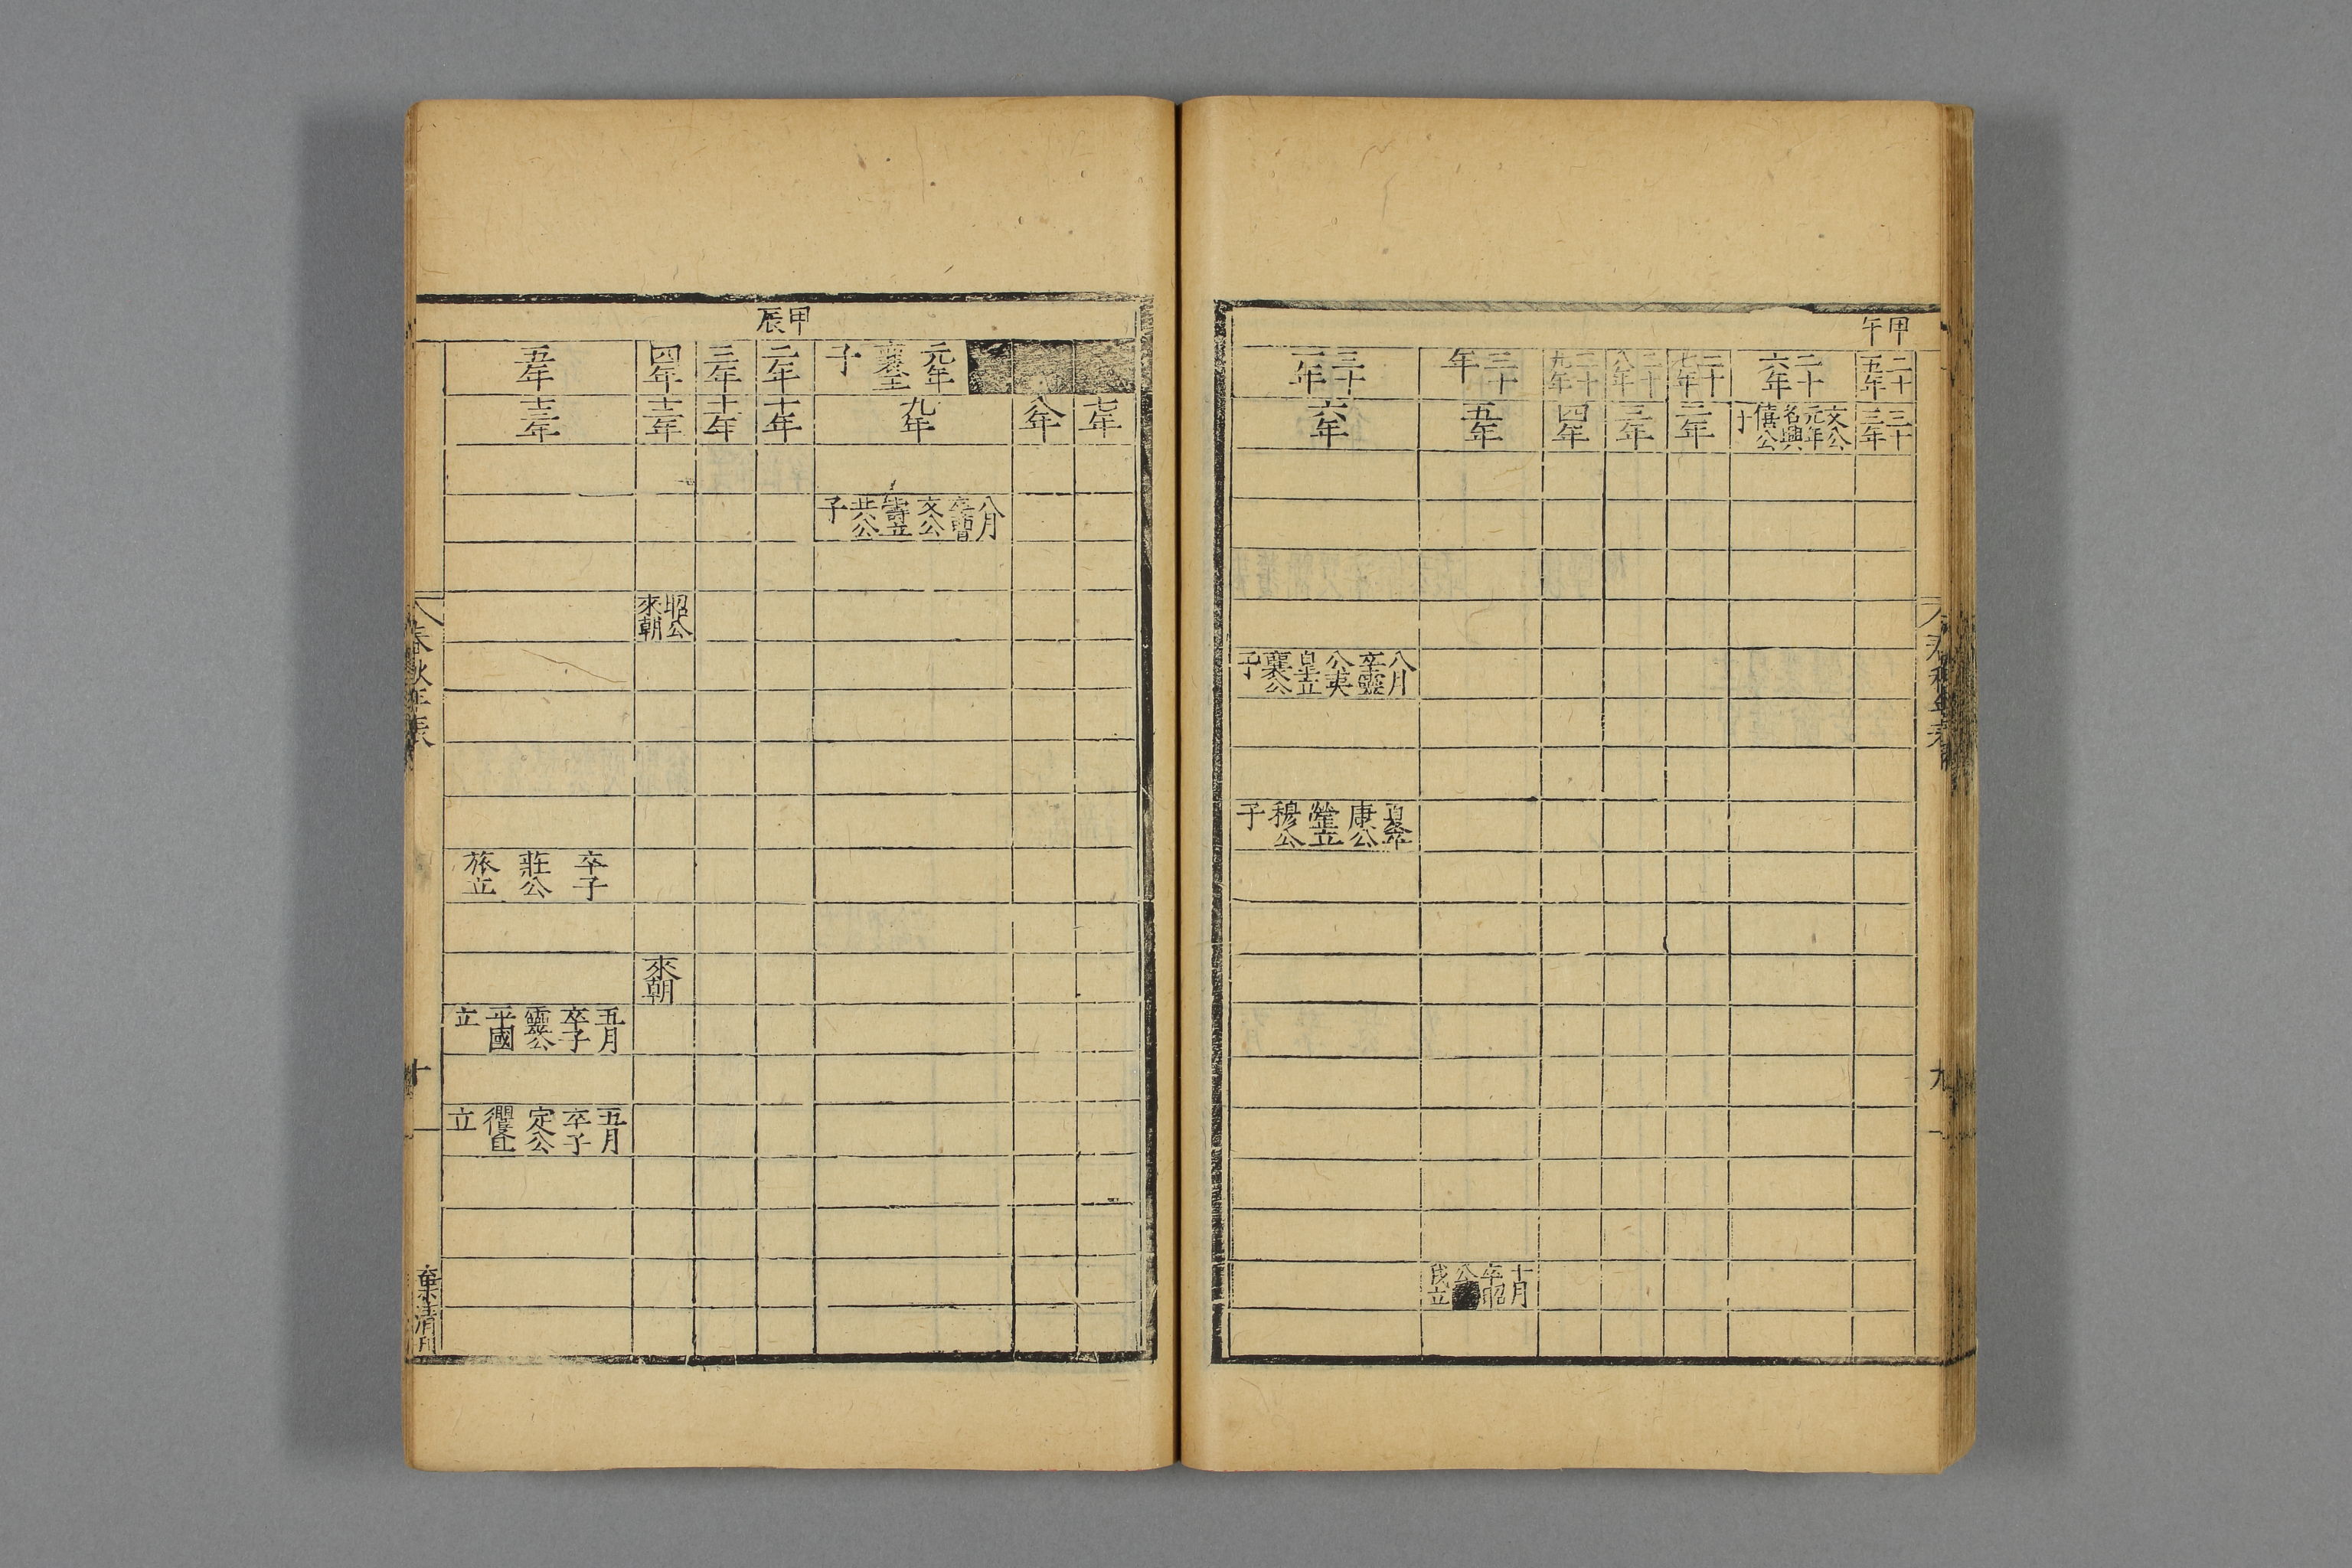 甲午
二十五年
二十六年
二十七年
二十八年
二十九年
三十年
三十一年
三十三年
文公元年名興僖公子
二年
三年
四年
五年
六年
八月卒靈公夷皐立襄公子
夏卒康公罃立穆公子
十月卒昭公
我立
春秋年表
九
甲辰
元年
襄王子
二年
三年
四年
五年
七年
八年
九年
十年
十一年
十二年
十三年
八月卒曹文公壽立共公子
昭公來朝
卒子莊公旅立
來朝
五月卒子靈公平國立
五月卒子定公貜且立
春秋年表
十
棄清刊